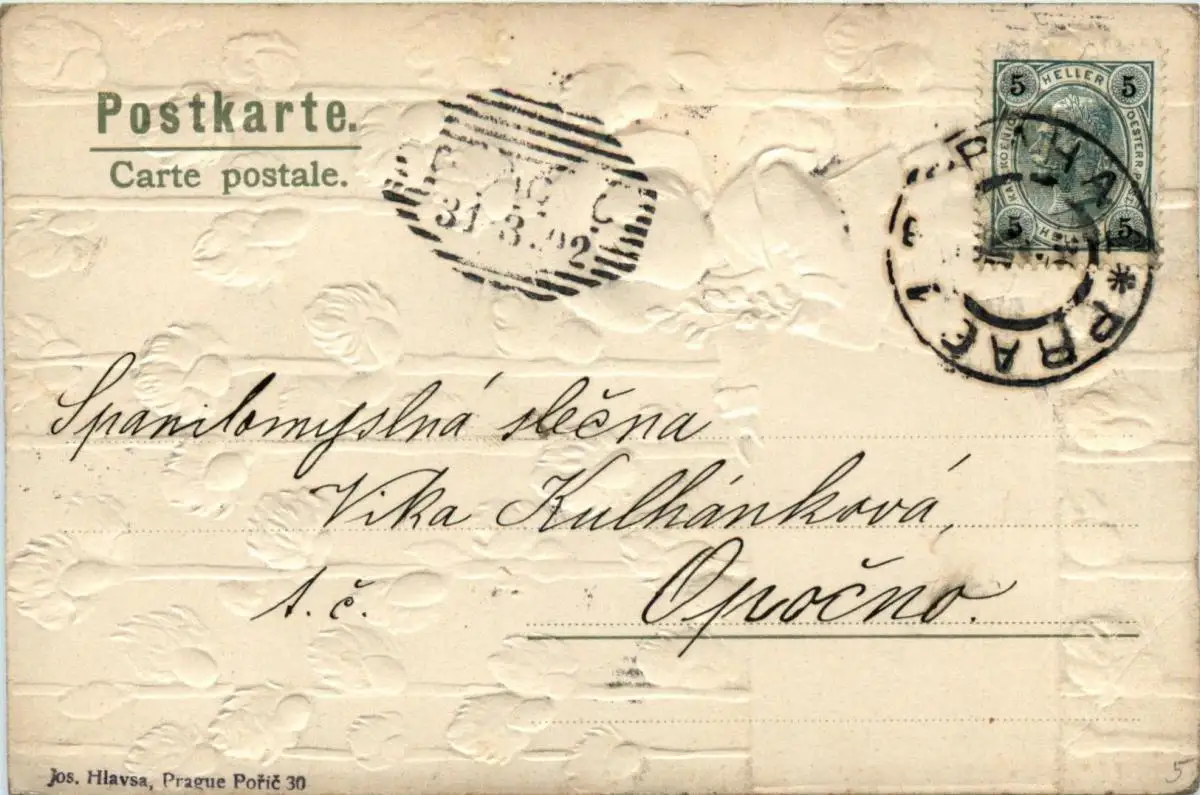 Postkarte.
Carte postale.
31 3 02
5 HELLER 5
5 5
PRAHA
* PRAG 1
Spanilomyslná slečna
Vika Kulhánková,
t. č. Opočno.
Jos. Hlavsa, Prague Poříč 30
5